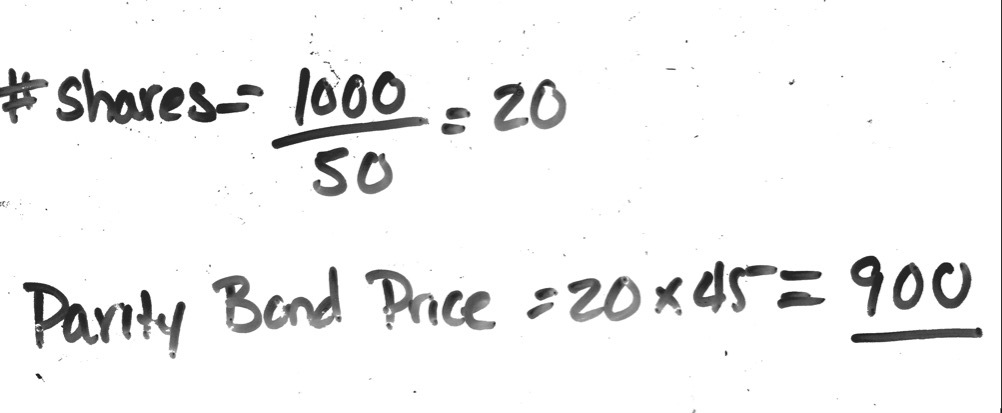 # Shares = 1000 / 50 = 20
Parity Bond Price = 20 × 45 = 900